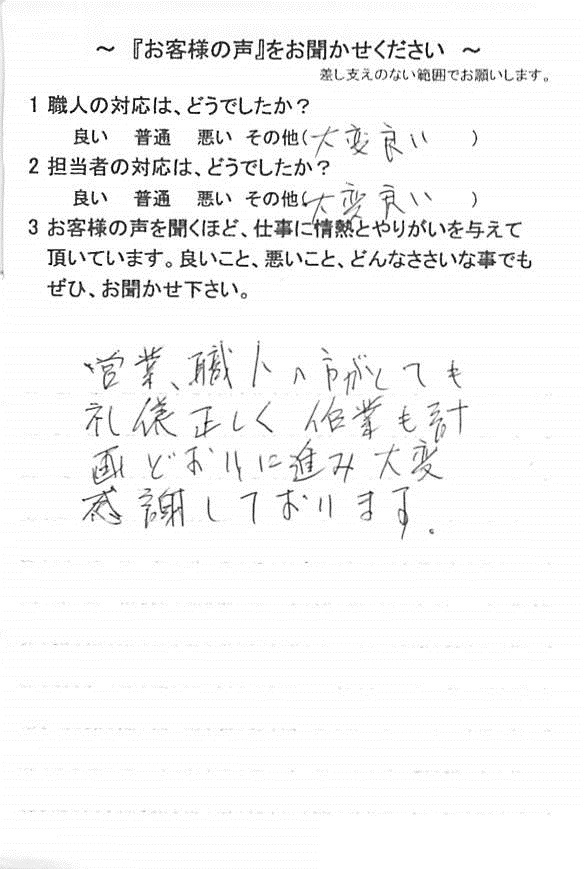 ～ 『お客様の声』をお聞かせください ～
差し支えのない範囲でお願いします。
1 職人の対応は、どうでしたか？
良い 普通 悪い その他(大変良い )
2 担当者の対応は、どうでしたか？
良い 普通 悪い その他(大変良い )
3 お客様の声を聞くほど、仕事に情熱とやりがいを与えて
頂いています。良いこと、悪いこと、どんなささいな事でも
ぜひ、お聞かせ下さい。
営業、職人の方がとても
礼儀正しく作業も計
画どおりに進み大変
感謝しております。